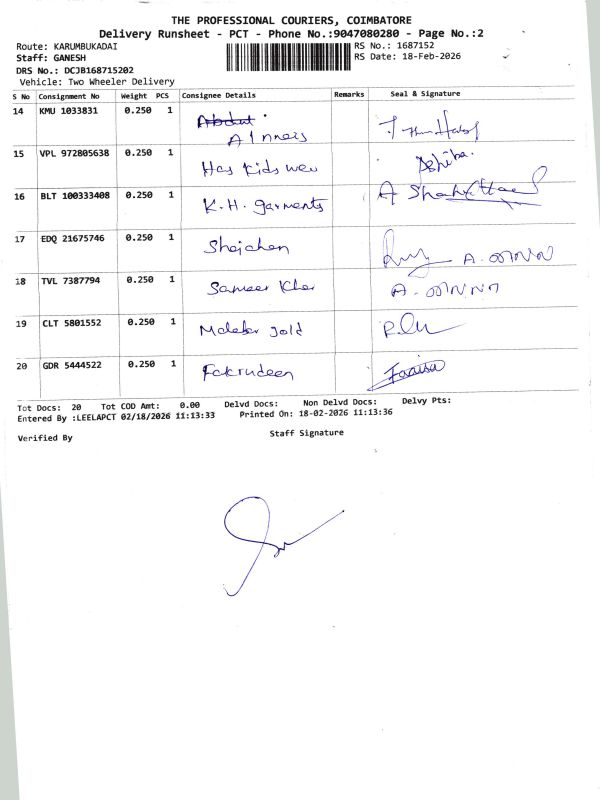 THE PROFESSIONAL COURIERS, COIMBATORE
Delivery Runsheet - PCT - Phone No.:9047080280 - Page No.:2
Route: KARUMBUKADAI RS No.: 1687152
Staff: GANESH RS Date: 18-Feb-2026
DRS No.: DCJB168715202
Vehicle: Two Wheeler Delivery
S No Consignment No Weight PCS Consignee Details Remarks Seal & Signature
14 KMU 1033831 0.250 1 Abdul
A Inners
15 VPL 972805638 0.250 1 Has Kids wear Ashiba.
16 BLT 100333408 0.250 1 K.H. garments A
17 EDQ 21675746 0.250 1 Shajahan A.
18 TVL 7387794 0.250 1 Sameer Kher A.
19 CLT 5801552 0.250 1 Malabar Gold
20 GDR 5444522 0.250 1 Fakrudeen
Tot Docs: 20 Tot COD Amt: 0.00 Delvd Docs: Non Delvd Docs: Delvy Pts:
Entered By :LEELAPCT 02/18/2026 11:13:33 Printed On: 18-02-2026 11:13:36
Verified By Staff Signature